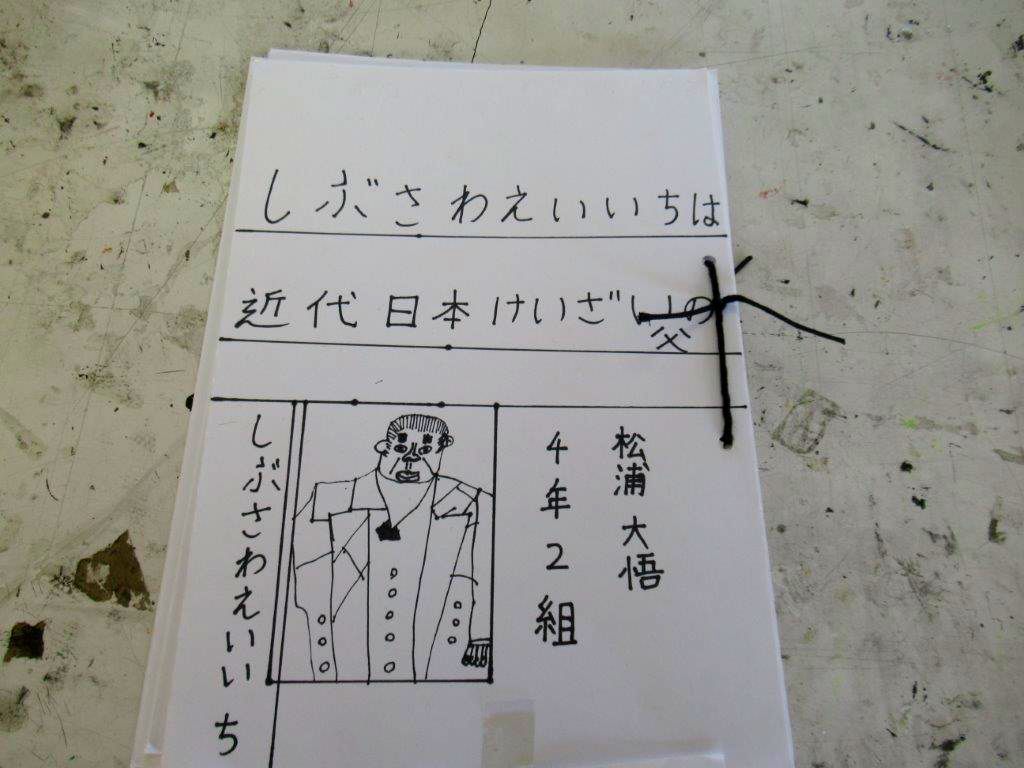 しぶさわえいいちは
近代日本けいざいの
父
松浦大悟
4年2組
しぶさわえいいち